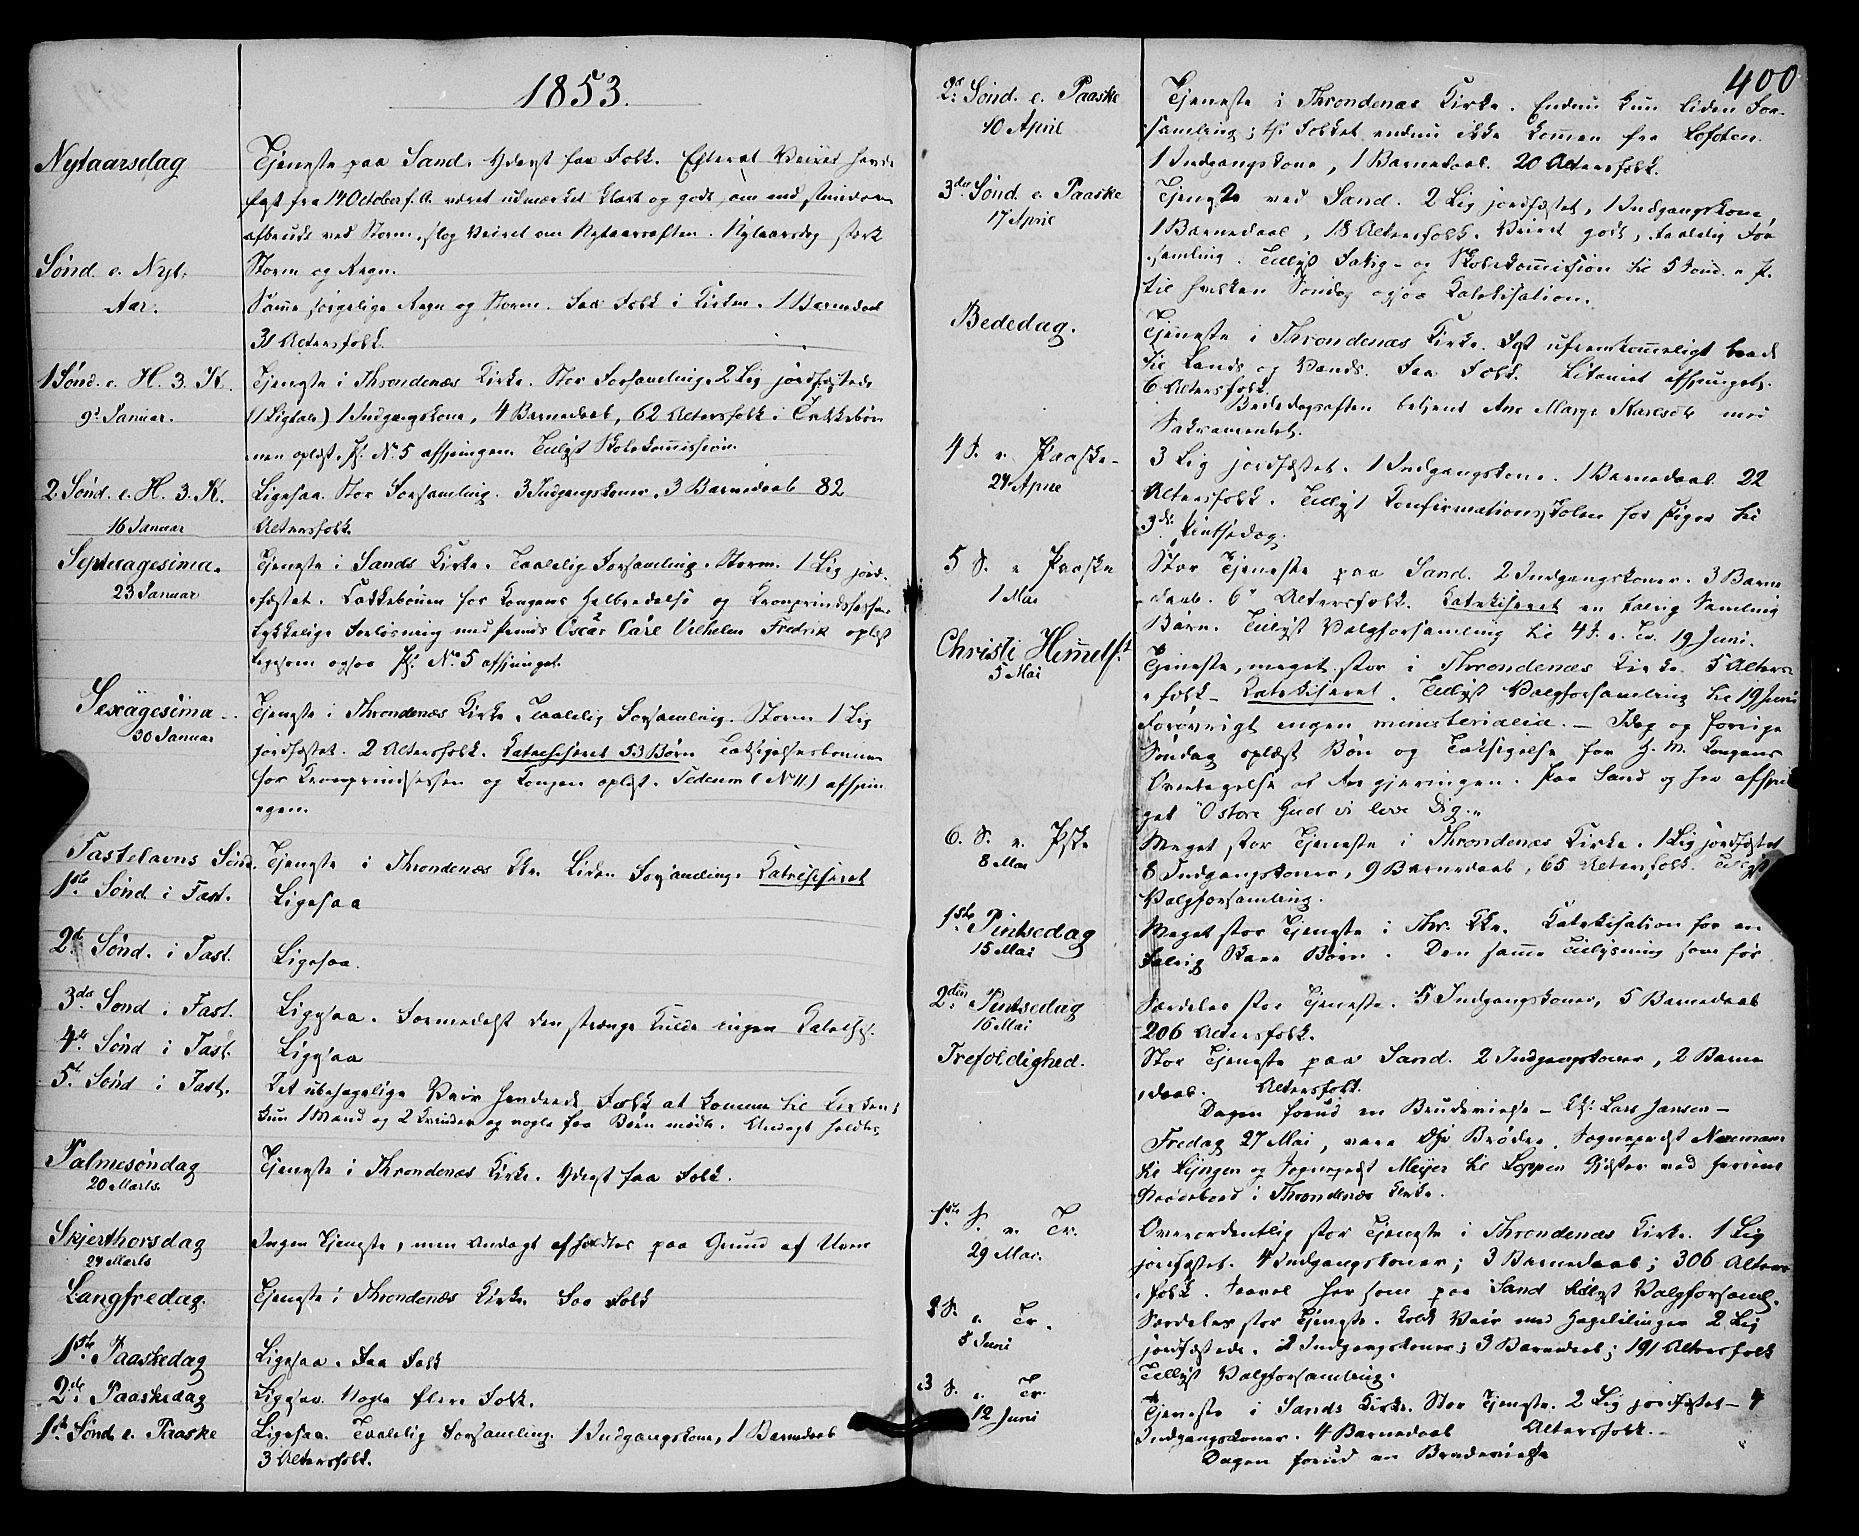 1853.
Nytaarsdag
Tjeneste paa Sand. Yderst faa Folk. Efterat Veiret havde
fast fra 14 October f. A. været udmærket klart og godt, om end stundom
afbrudt ved Storm, slog Veiret om Nytaarsaften. Nytaarsdag stærk
Storm og Regn.
Sønd. e. Nyt.
Aar.
Samme sørgelige Regn og Storm. Faa Folk i Kirken. 1 Barnedaab
31 Altersfolk.
1 Sønd. e. H. 3. K.
9d Januar.
Tjeneste i Throndenæs Kirke. Stor Forsamling. 2 Lig jordfæstede
(1 Ligtale) 1 Indgangskone, 4 Barnedaab, 62 Altersfolk. Takkebøn
nen oplæst. Ps. No. 5 afsungen. Tillyst Skolekommission.
2 Sønd. e. H. 3. K.
16 Januar
Ligesaa. Stor Forsamling. 3 Indgangskoner, 3 Barnedaab 82
Altersfolk
Septuagesima.
23 Januar
Tjeneste i Sands Kirke. Taalelig Forsamling. Storm. 1 Lig jord-
fæstet. Takkebønnen for Kongens Helbredelse og Kronprindsessens
lykkelige Forløsning med Prinds Oscar Carl Vilhelm Fredrik oplæst
ligesom ogsaa Ps. No. 5 afsunget.
Sexagesima
30 Januar
Tjeneste i Throndenæs Kirke. Taalelig Forsamling. Storm 1 Lig
jordfæstet. 2 Altersfolk. Katechiseret 53 Børn Taksigelsesbønnen
for Kronprindsessen og Kongen oplæst. Tedeum (N 11) afsun
gen.
Fastelavns Sønd.
Tjeneste i Throndenæs Kke. Liden Forsamling. Katechiseret
1ste Sønd. i Fast.
Ligesaa
2d Sønd. i Fast.
Ligesaa.
3die Sønd i Fast.
Ligesaa. Formedelst den strænge Kulde ingen Katechis.
4de Sønd i Fast.
Ligesaa
5t. Sønd i Fast.
Det ubehagelige Veir hindrede Folk at komme til Kirken;
kun 1 Mand og 2 Kvinder og nogle faa Børn mødte. Andagt holdtes.
Palmesøndag
20 Marts.
Tjeneste i Throndenæs Kirke. Yderst faa Folk.
Skjerthorsdag
24 Marts
Ingen Tjeneste, men Andagt afholdtes paa Grund af Uveir
Langfredag.
Tjeneste i Throndenæs Kirke. Faa Folk
1ste Paaskedag
Ligesaa. Faa Folk
2de Paaskedag
Ligesaa. Nogle flere Folk.
1ste Sønd e. Paaske
Ligesaa. Taalelig Forsamling. 1 Indgangskone, 1 Barnedaab
3 Altersfolk.
400
2d Sønd. e. Paaske
10 April
Tjeneste i Throndenæs Kirke. Endnu kun liden For-
samling; thi Folket endnu ikke kommen fra Lofoten.
1 Indgangskone, 1 Barnedaab. 20 Altersfolk.
3die Sønd. e. Paaske
17 April
Tjeneste ved Sand. 2 Lig jordfæstet, 1 Indgangskone,
1 Barnedaab, 18 Altersfolk. Veiret godt, taalelig For
samling. Tillyst Fattig- og Skolekomision til 5 Sønd. e. P.
til hvilken Søndag ogsaa Katekisation.
Bededag.
Tjeneste i Throndenæs Kirke. Just ufremkommeligt baade
til Lands og Vands. Faa Folk. Litaniet afsunget.
6 Altersfolk.
Bededagsaften betjent Ane Marge med
Sakramentet.
4 S. e. Paaske
24 April
3 Lig jordfæstet. 1 Indgangskone. 1 Barnedaab. 22
Altersfolk. Tillyst Konfirmationsskolen for Piger til
3die Pintsedag.
5 S. e. Paaske
1 Mai
Stor Tjeneste paa Sand. 2 Indgangskoner. 3 Barne
daab. 6 Altersfolk. Katekiseret en talrig Samling
Børn. Tillyst Valgforsamling til 4 S. e. Tr. 19 Juni.
Christi Hemelf.
5 Mai
Tjeneste, meget stor i Throndenæs Kirke. 5 Alters
folk - Katekiseret. Tillyst Valgforsamling til 19 Juni
Forøvrigt ingen ministerialia. - Idag og forrige
Søndag oplæst Bøn og Taksigelse for H. M. Kongens
Overtagelse af Regjeringen. Paa Sand og her afsun
get "O store Gud vi love Dig."
6. S. e. Pske
8 Mai
Meget stor Tjeneste i Throndenæs Kirke. 1 Lig jordfæstet
8 Indgangskoner, 9 Barnedaab, 65 Altersfolk. Tillyst
Valgforsamling.
1ste Pintsedag
15 Mai
Meget stor Tjeneste i Thr. Kke. Katekisation for en
talrig Skare Børn. Den samme Tillysning som før
2den Pintsedag
16 Mai
Særdeles stor Tjeneste. 5 Indgangskoner, 5 Barnedaab
206 Altersfolk.
Trefoldighed.
Stor Tjeneste paa Sand. 2 Indgangskoner, 2 Barne
daab. Altersfolk.
Dagen forud en Brudevielse - Lars Jansen -
Fredag 27 Mai, vare Brødre, Sognepræst Normann
til og Sognepræst Meyer til Loppen Gjester ved Herrens
Naadebord i Throndenæs Kirke.
1ste S. e. Tr.
29 Mai.
Overordentlig stor Tjeneste i Throndenæs Kirke. 1 Lig
jordfæstet. 4 Indgangskoner; 3 Barnedaab; 306 Alters
folk. Saavel her som paa Sand tillyst Valgforsaml.
2 S. e. Tr.
5 Juni
Særdeles stor Tjeneste. Koldt Veir med Hagelilinger 2 Lig
jordfæstede. 2 Indgangskoner; 3 Barnedaab; 191 Altersfolk
Tillyst Valgforsamling.
3 S. e. Tr.
12 Juni
Tjeneste i Sands Kirke. Stor Tjeneste. 2 Lig jordfæstet - 4
Indgangskoner. 4 Barnedaab Altersfolk. -
Dagen forud en Brudevielse